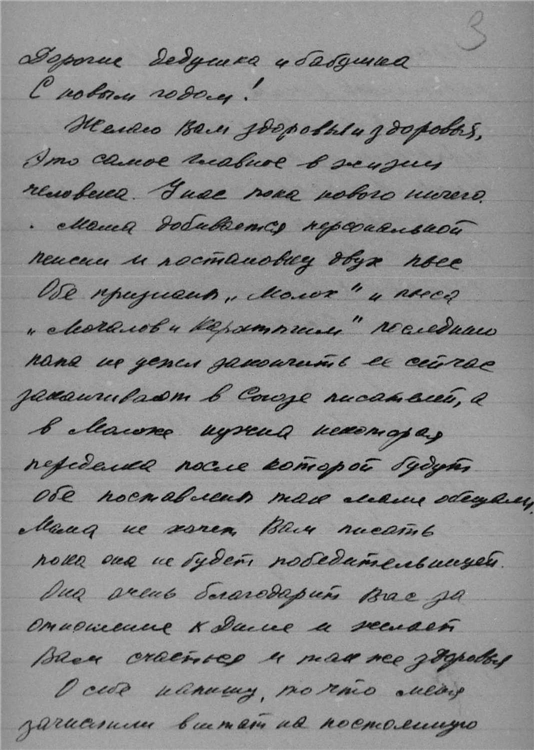 3
Дорогие дедушка и бабушка
С новым годом!
Желаю Вам здоровья и здоровья,
Это самое главное в жизни
человека. У нас пока нового ничего.
. Мама добивается персональной
пенсии и постановку двух пьес
Обе признаны „Молох" и пьеса
„Мочалов и Каратыгин" последнюю
папа не успел закончить ее сейчас
заканчивают в Союзе писателей, а
в Молохе нужна некоторая
переделка после которой будут
обе поставлены так маме обещали.
Мама не хочет Вам писать
пока она не будет победительницей.
Она очень благодарит Вас за
отношение к Диме и желает
Вам счастья и так же здоровья
О себе напишу, то что меня
зачислили в штат на постоянную